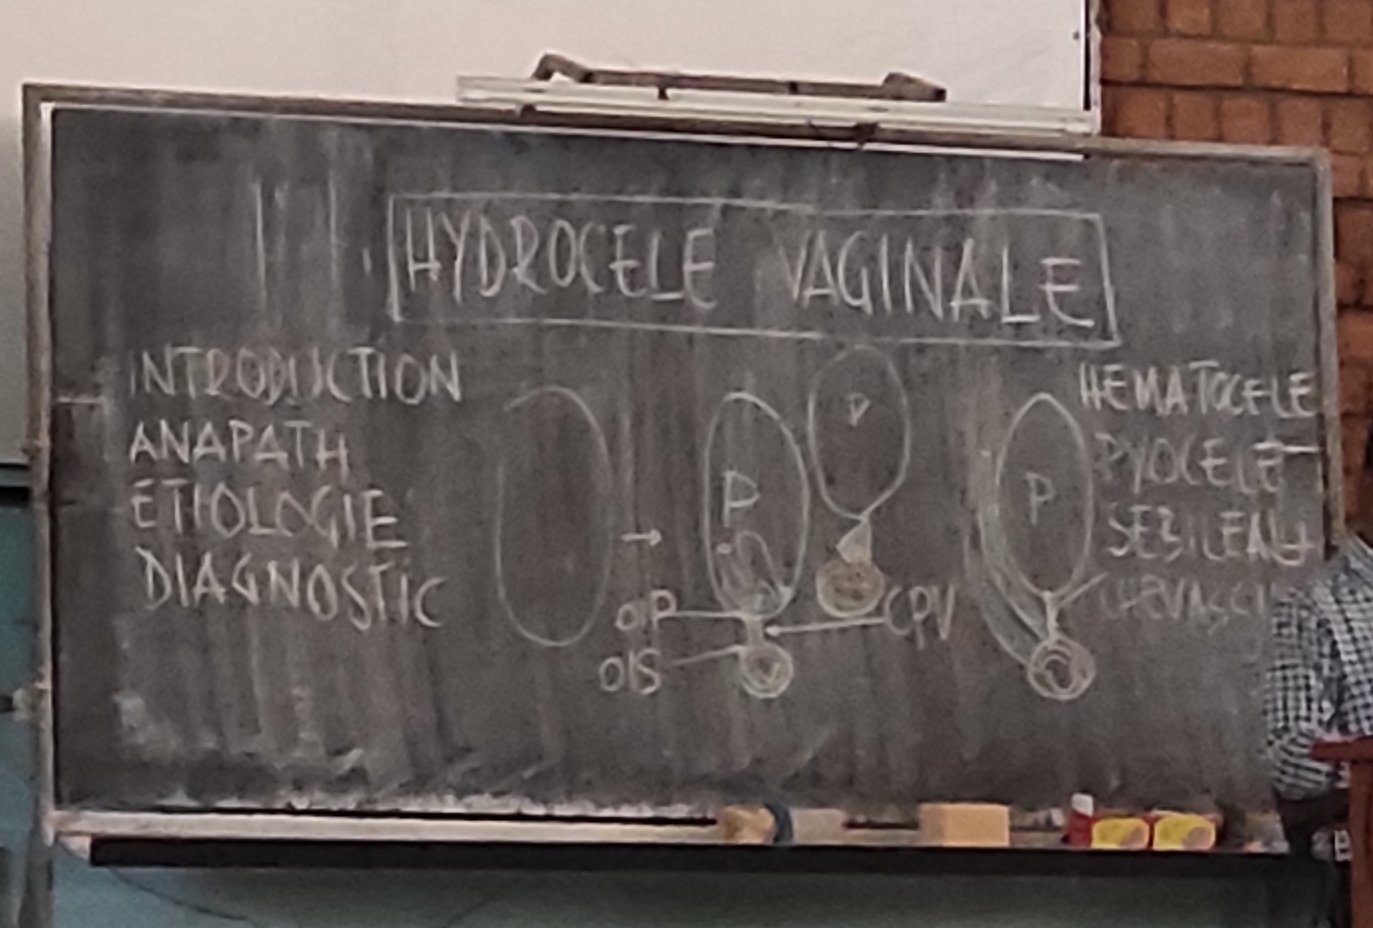 HYDROCELE VAGINALE
INTRODUCTION
ANAPATH
ETIOLOGIE
DIAGNOSTIC
P
P
P
OIP
OIS
CPV
HEMATOCELE
PYOCELE